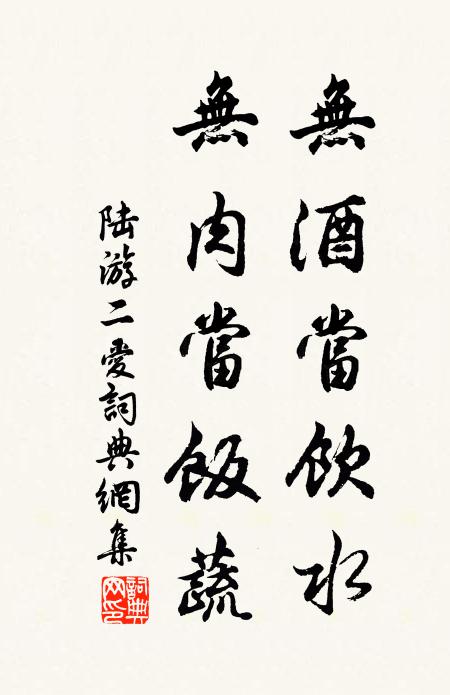 無酒當飲水
無肉當飯蔬
陆游二愛詞典網集
詞典网印